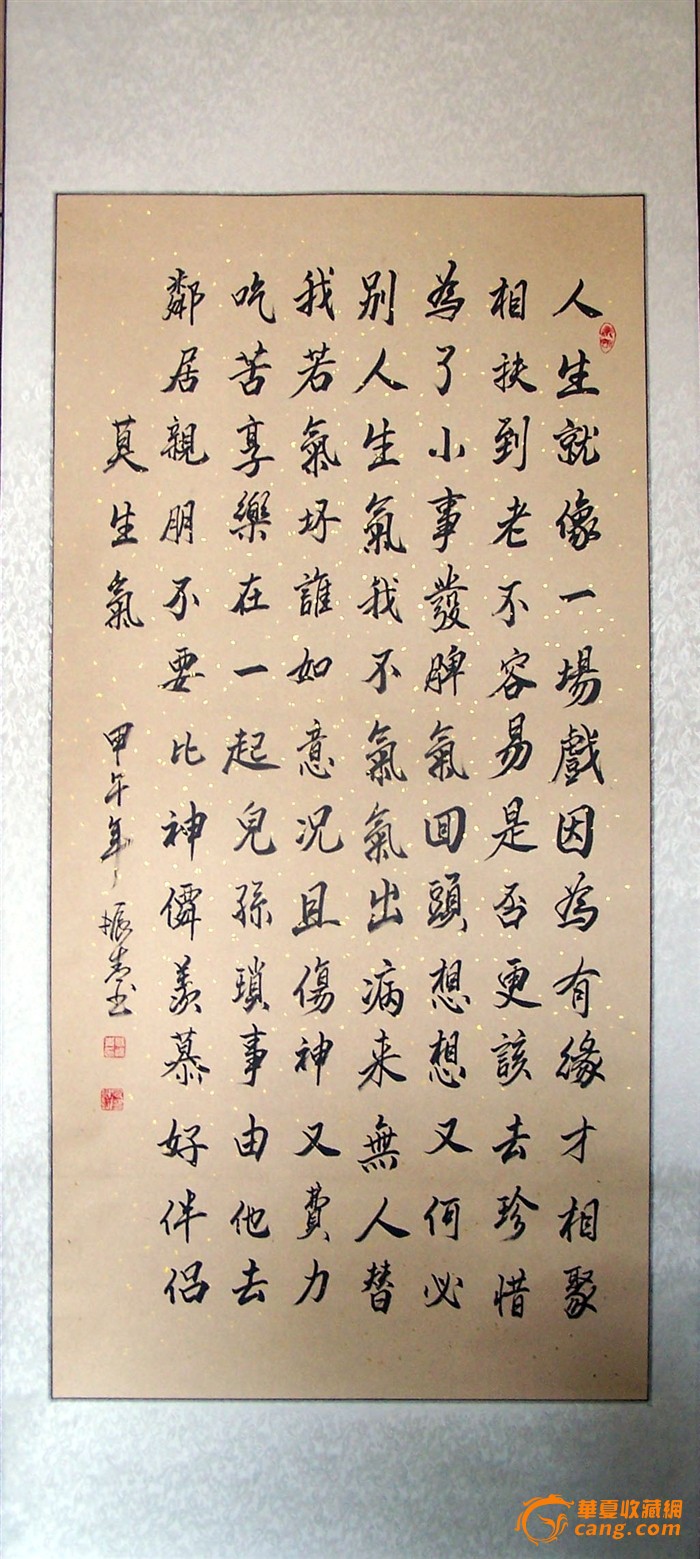 人生就像一場戲因為有緣才相聚
相扶到老不容易是否更該去珍惜
為了小事發脾氣回頭想想又何必
别人生氣我不氣氣出病来無人替
我若氣坏誰如意况且傷神又費力
吃苦享樂在一起兒孫瑣事由他去
鄰居親朋不要比神僊羨慕好伴侣
莫生氣
甲午年振書
華夏收藏網
cang.com